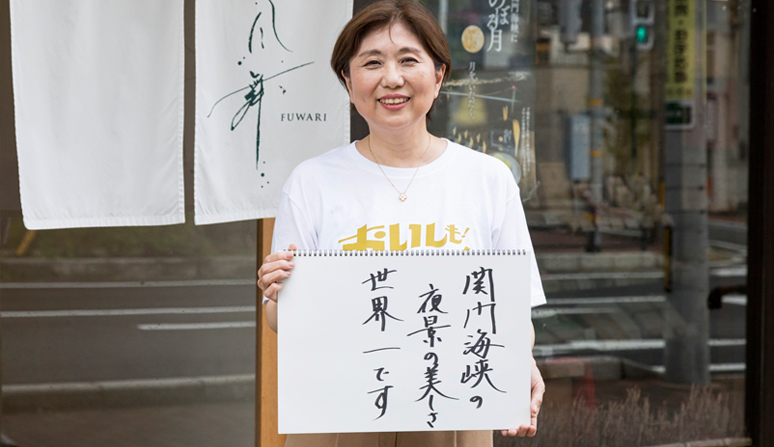 風舞
FUWARI
のぼる月
おいしも!
関門海峡の
夜景の美しさ
世界一です